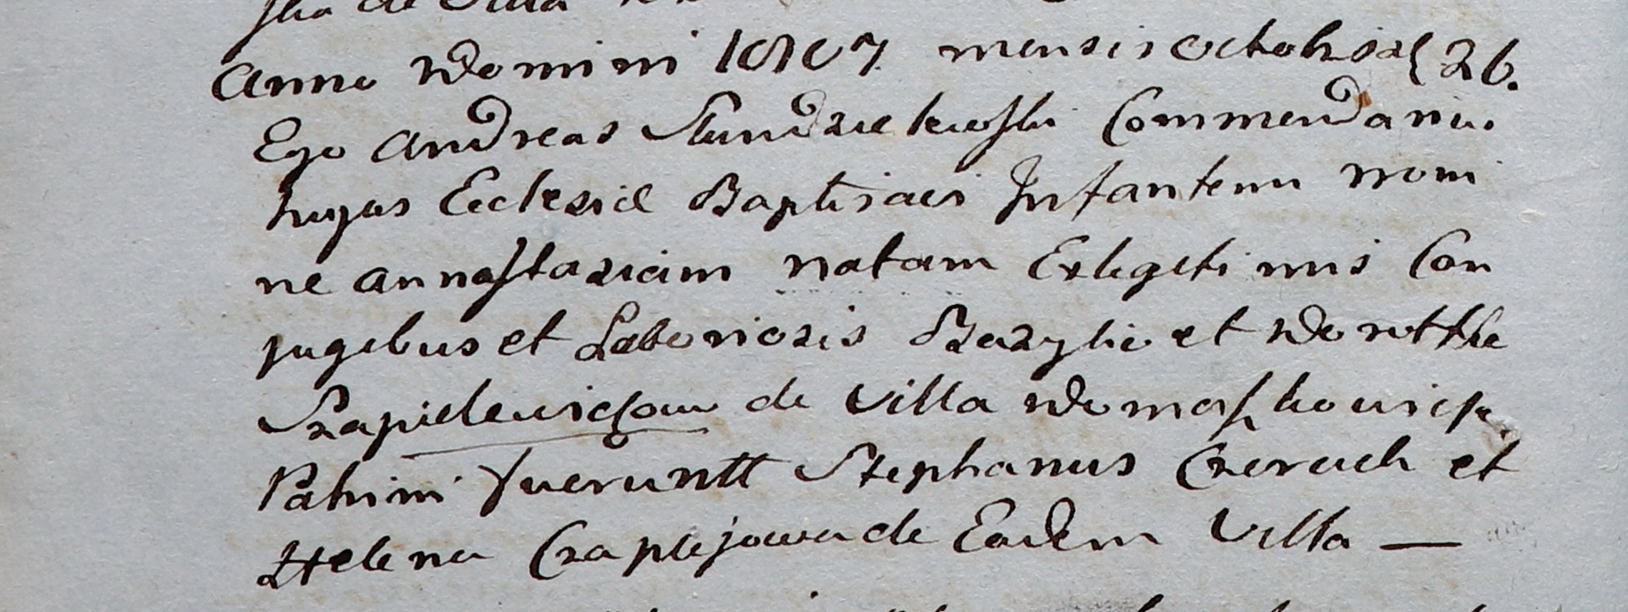 de Villa
Anno Domini 1807 mensis Octobris d 26.
Ego Andreas Commendarius
hujus Ecclesiæ Baptisavi Infantem nomi
ne Annastaziam natam Exlegitimis Con
jugibus et Laboriosis Bazylio et Dorotthe
Szapielewiczow de Villa Domaszkowicze
Patrini Fueruntt Stephanus Czeruch et
Helena Czaplejowa de Eadem Villa —